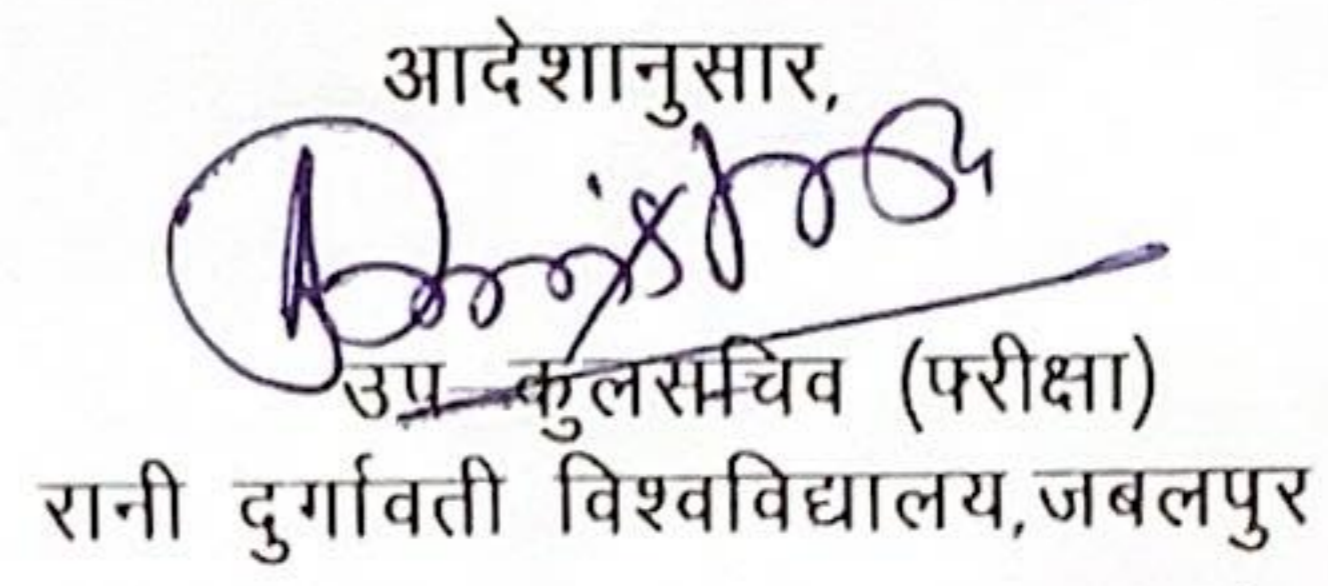 आदेशानुसार,
उप कुलसचिव (परीक्षा)
रानी दुर्गावती विश्वविद्यालय,जबलपुर